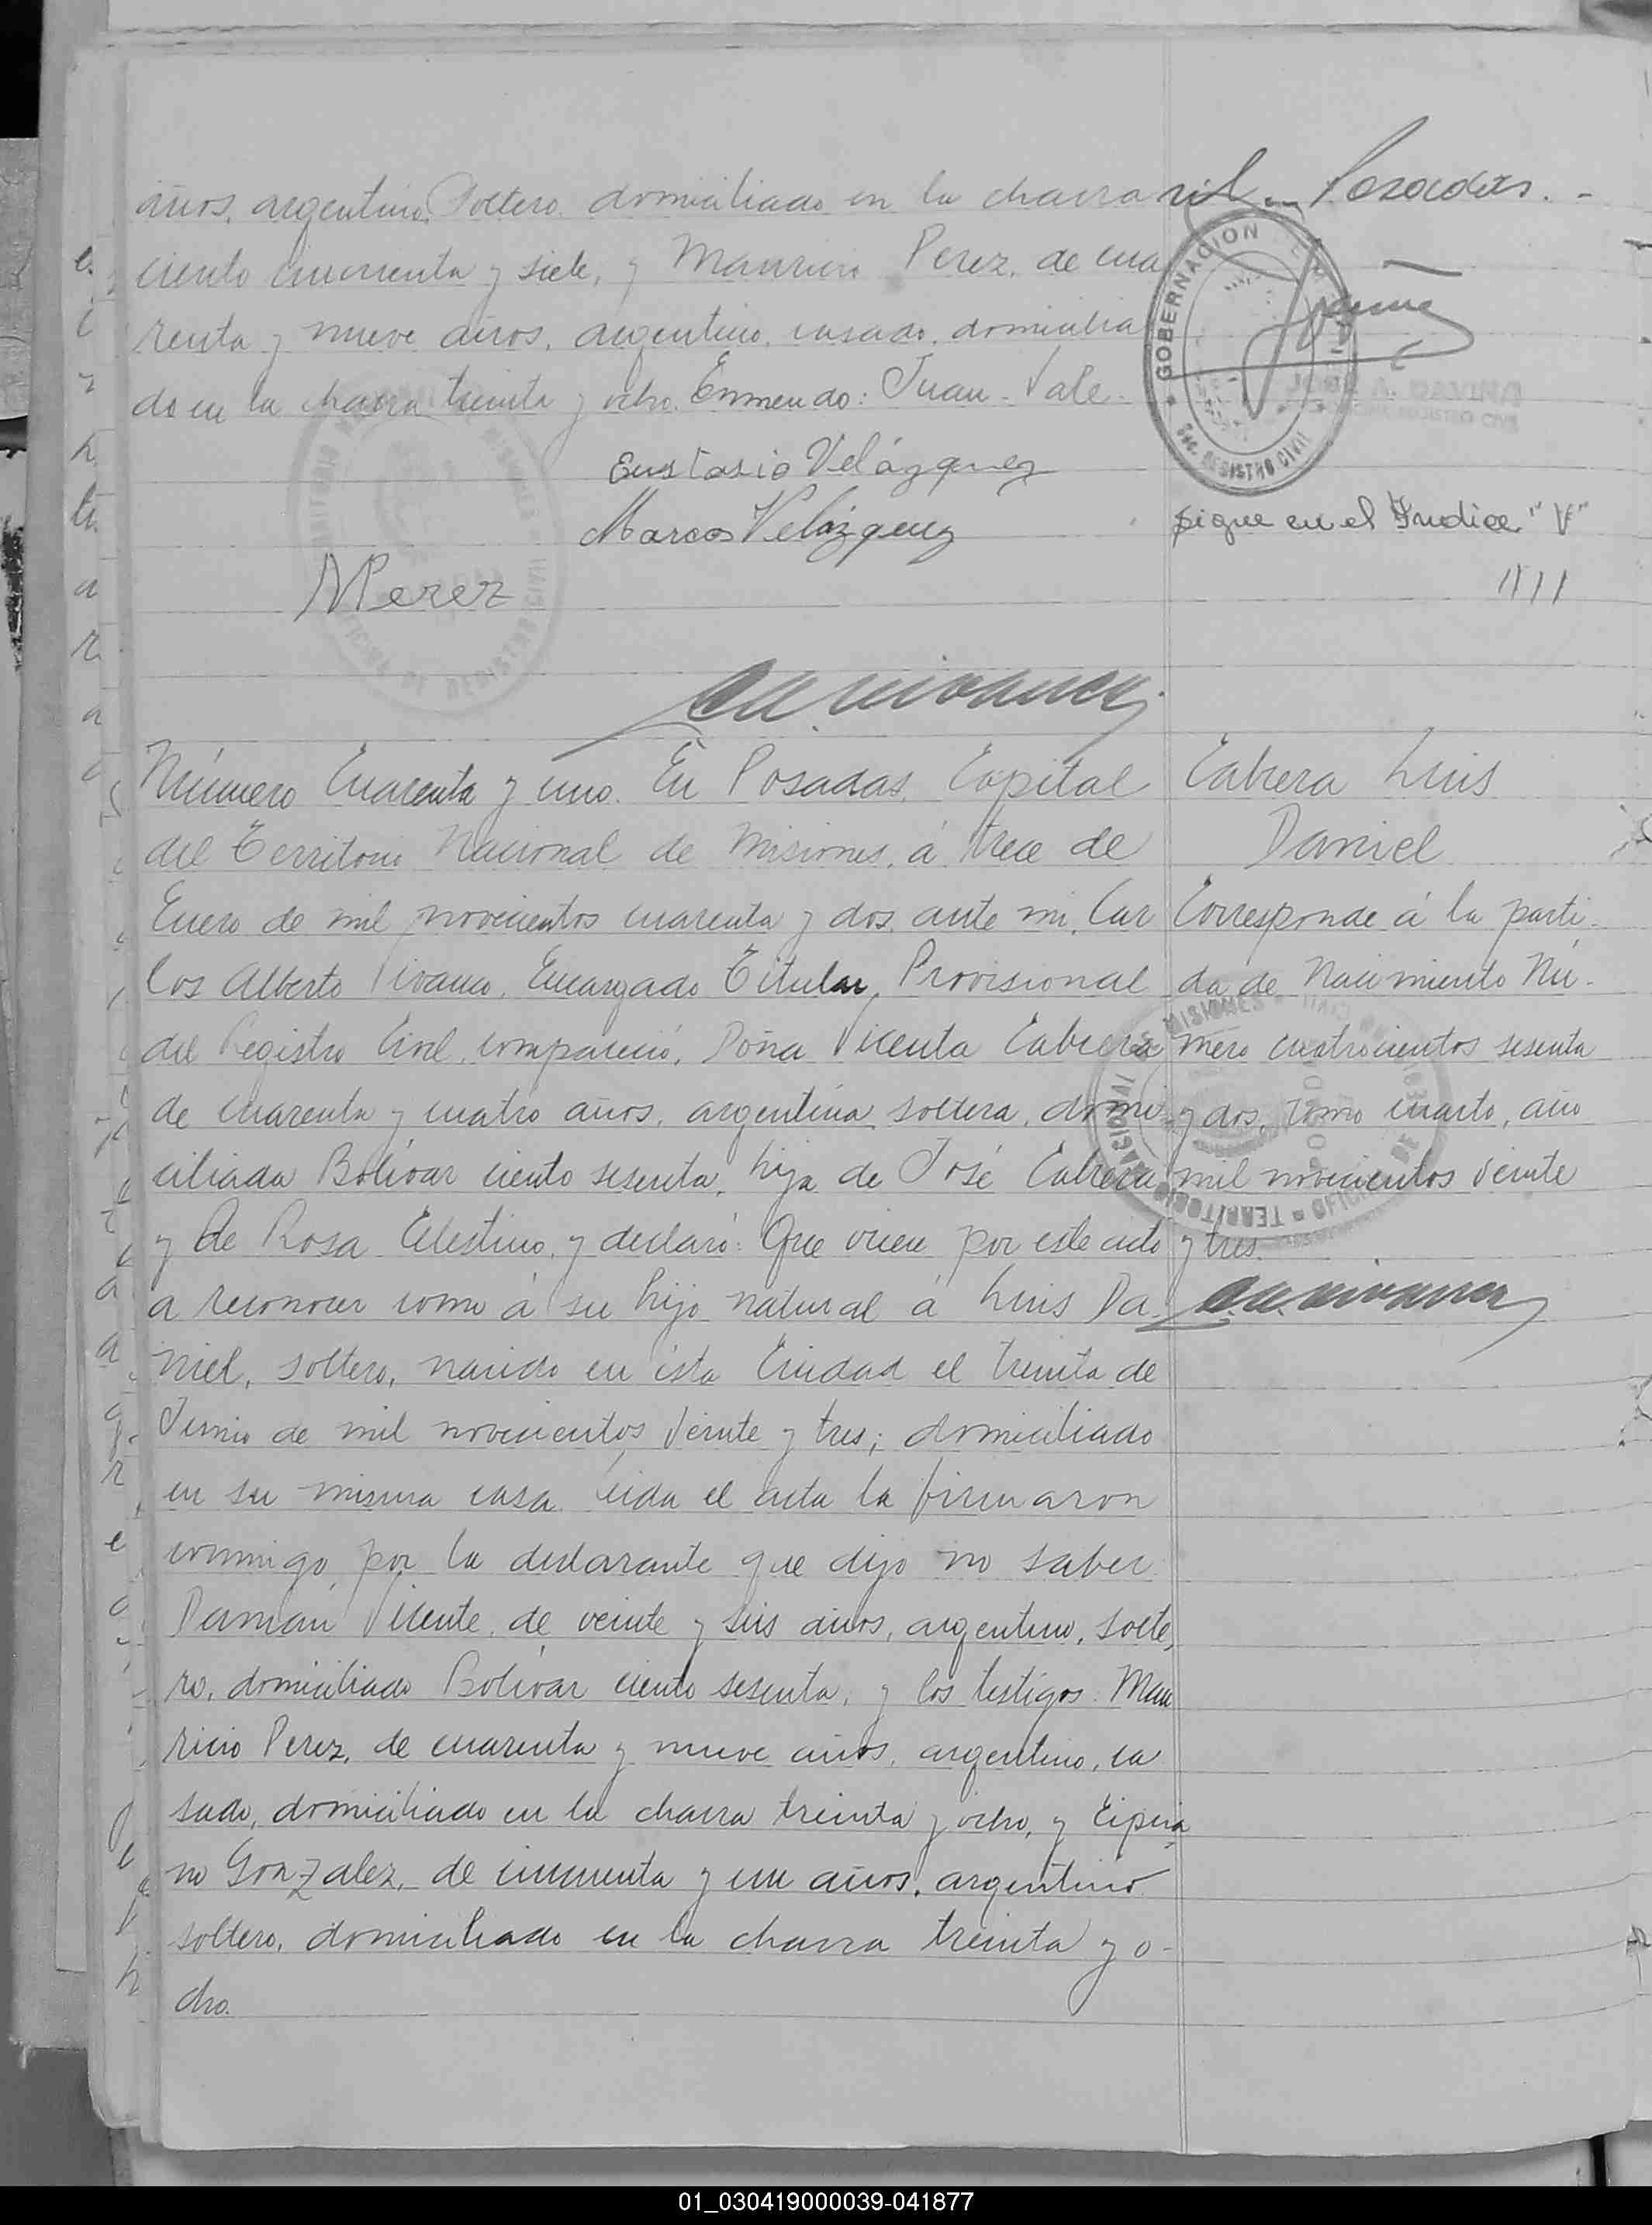 años, argentino, soltero domiciliado en la chacra
ciento cincuenta y siete, y Mauricio Perez, de cua
renta y nueve años, argentino, casado, domicilia
do en la chacra treinta y ocho. Enmendo: Juan - Vale.
Eustasio Velázquez
Marcos Velázquez
MPerez
vil en Posadas. -
GOBERNACION
SEC. REGISTRO CIVIL
JOSE A. DAVIÑA
REGISTRO CIVIL
sigue en el Indice "V"
Número Cuarenta y uno. En Posadas, Capital
del Territorio Nacional de Misiones, á trece de
Enero de mil novecientos cuarenta y dos, ante mi, Car
los Alberto Vivanco, Encargado Titular, Provisional
del Registro Civil, compareció, Doña Vicenta Cabrera
de cuarenta y cuatro años, argentina, soltera, domi
ciliada Bolívar ciento sesenta, hija de José Cabrera
y de Rosa Celestino, y declaró: Que viene por este acto
a reconocer como á su hijo natural á Luis Da
niel, soltero, nacido en ésta Ciudad el treinta de
Junio de mil novecientos veinte y tres; domiciliado
en su misma casa. Leida el acta la firmaron
conmigo, por la declarante que dijo no saber
Damian Vicente, de veinte y seis años, argentino, solte,
ro, domiciliado Bolívar ciento sesenta, y los testigos: Mau
ricio Perez, de cuarenta y nueve años, argentino, ca
sado, domiciliado en la chacra treinta y ocho, y Cipria
no Gonzalez, de cincuenta y un años, argentino
soltero, domiciliado en la chacra treinta y o-
cho.
Cabrera Luis
Daniel
Corresponde á la parti-
da de Nacimiento Nú-
mero cuatrocientos sesenta
y dos, tomo cuarto, año
mil novecientos veinte
y tres.
01_030419000039-041877